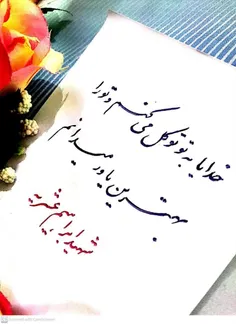 خدایا به تو توکل می کنم و تو را
بهترین یاور میدانم
شهید ابراهیم عشریه